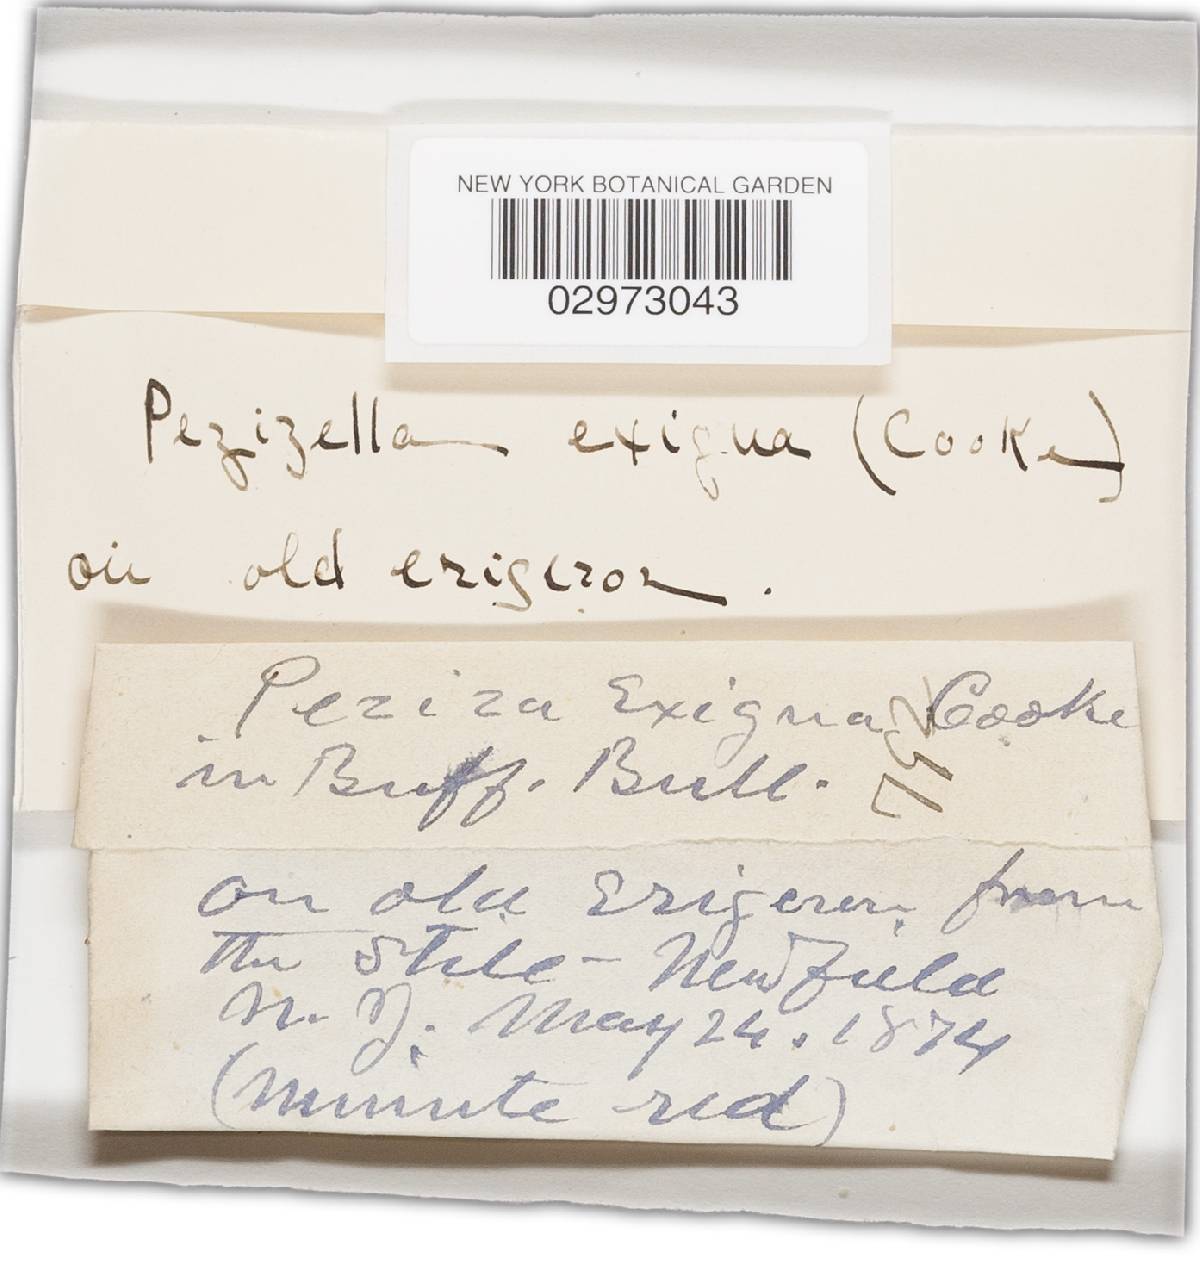 NEW YORK BOTANICAL GARDEN
02973043
Pezizella exigua (Cooke)
on old erigeron.
Peziza Exigua Cooke
in Buff. Bull.
on old Erigeron from
the Stile - Newfield
N. J. May 24. 1874
(minute red)